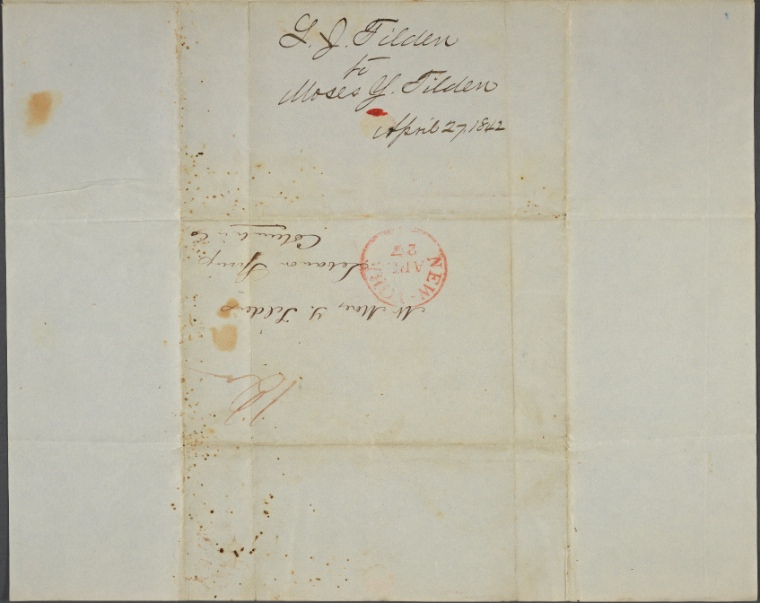 S. J. Tilden
to
Moses Y. Tilden
April 27, 1842
NEW-YORK
APR
27
Mr. Moses Y. Tilden
Lebanon Springs
Columbia Co